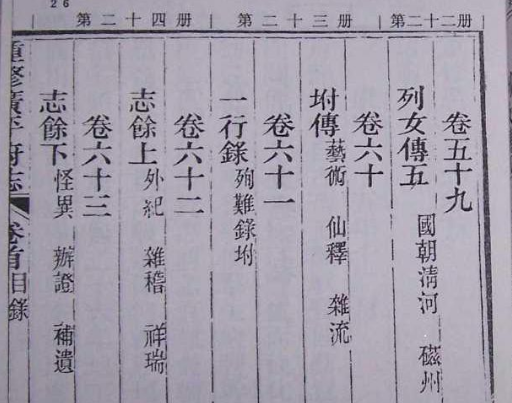 26
第二十二册
第二十三册
第二十四册
卷五十九
列女傳五 國朝清河 磁州
卷六十
坿傳 藝術 仙釋 雜流
卷六十一
一行錄 殉難錄坿
卷六十二
志餘上 外紀 雜稽 祥瑞
卷六十三
志餘下 怪異 辨證 補遺
重修廣平府志 卷首目錄